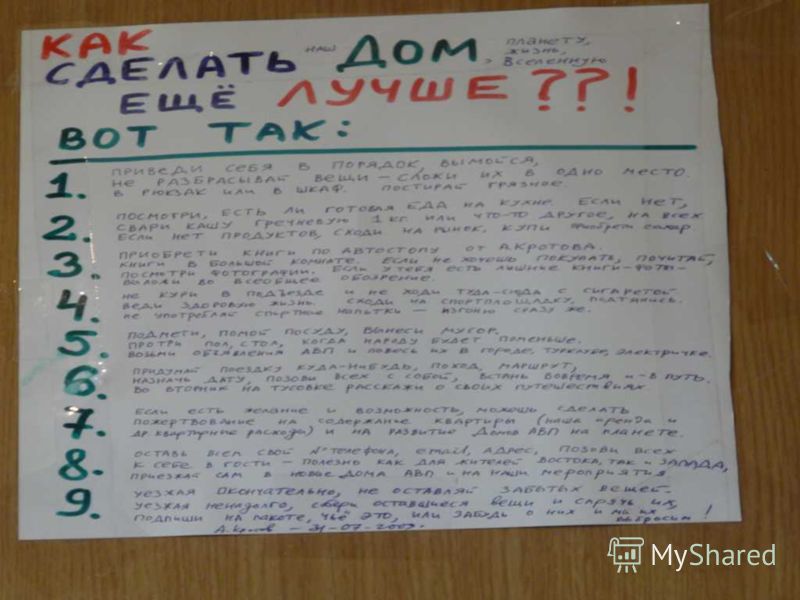 КАК
СДЕЛАТЬ НАШ ДОМ > ПЛАНЕТУ, ЖИЗНЬ, ВСЕЛЕННУЮ
ЕЩЁ ЛУЧШЕ??!
ВОТ ТАК:
1. ПРИВЕДИ СЕБЯ В ПОРЯДОК, ВЫМОЙСЯ,
НЕ РАЗБРАСЫВАЙ ВЕЩИ – СЛОЖИ ИХ В ОДНО МЕСТО.
В РЮКЗАК ИЛИ В ШКАФ. ПОСТИРАЙ ГРЯЗНОЕ.
2. ПОСМОТРИ, ЕСТЬ ЛИ ГОТОВАЯ ЕДА НА КУХНЕ. ЕСЛИ НЕТ,
СВАРИ КАШУ ГРЕЧНЕВУЮ 1 КГ ИЛИ ЧТО-ТО ДРУГОЕ, НА ВСЕХ
ЕСЛИ НЕТ ПРОДУКТОВ, СХОДИ НА РЫНОК, КУПИ ПРИОБРЕТИ САХАР
3. ПРИОБРЕТИ КНИГИ ПО АВТОСТОПУ ОТ А.КРОТОВА.
КНИГИ В БОЛЬШОЙ КОМНАТЕ. ЕСЛИ НЕ ХОЧЕШЬ ПОКУПАТЬ, ПОЧИТАЙ,
ПОСМОТРИ ФОТОГРАФИИ. ЕСЛИ У ТЕБЯ ЕСТЬ ЛИШНИЕ КНИГИ-ФОТО-
ВЫЛОЖИ ВО ВСЕОБЩЕЕ ОБОЗРЕНИЕ.
4. НЕ КУРИ В ПОДЪЕЗДЕ И НЕ ХОДИ ТУДА-СЮДА С СИГАРЕТОЙ.
ВЕДИ ЗДОРОВУЮ ЖИЗНЬ. СХОДИ НА СПОРТПЛОЩАДКУ, ПОДТЯНИСЬ.
НЕ УПОТРЕБЛЯЙ СПИРТНЫЕ НАПИТКИ – ИЗГОНЮ СРАЗУ ЖЕ.
5. ПОДМЕТИ, ПОМОЙ ПОСУДУ, ВЫНЕСИ МУСОР.
ПРОТРИ ПОЛ, СТОЛ, КОГДА НАРОДУ БУДЕТ ПОМЕНЬШЕ.
ВОЗЬМИ ОБЪЯВЛЕНИЯ АВП И ПОВЕСЬ ИХ В ГОРОДЕ, ТУРКЛУБЕ, ЭЛЕКТРИЧКЕ.
6. ПРИДУМАЙ ПОЕЗДКУ КУДА-НИБУДЬ, ПОХОД, МАРШРУТ,
НАЗНАЧЬ ДАТУ, ПОЗОВИ ВСЕХ С СОБОЙ, ВСТАНЬ ВОВРЕМЯ И – В ПУТЬ.
ВО ВТОРНИК НА ТУСОВКЕ РАССКАЖИ О СВОИХ ПУТЕШЕСТВИЯХ.
7. ЕСЛИ ЕСТЬ ЖЕЛАНИЕ И ВОЗМОЖНОСТЬ, МОЖЕШЬ СДЕЛАТЬ
ПОЖЕРТВОВАНИЕ НА СОДЕРЖАНИЕ КВАРТИРЫ (НАША АРЕНДА И
ДР. КВАРТИРНЫЕ РАСХОДЫ) И НА РАЗВИТИЕ ДОМОВ АВП НА ПЛАНЕТЕ.
8. ОСТАВЬ ВСЕМ СВОЙ № ТЕЛЕФОНА, EMAIL, АДРЕС, ПОЗОВИ ВСЕХ
К СЕБЕ В ГОСТИ – ПОЛЕЗНО КАК ДЛЯ ЖИТЕЛЕЙ ВОСТОКА, ТАК И ЗАПАДА,
ПРИЕЗЖАЙ САМ В НОВЫЕ ДОМА АВП И НА НАШИ МЕРОПРИЯТИЯ
9. УЕЗЖАЯ ОКОНЧАТЕЛЬНО, НЕ ОСТАВЛЯЙ ЗАБЫТЫХ ВЕЩЕЙ.
УЕЗЖАЯ НЕНАДОЛГО, СОБЕРИ ОСТАВШИЕСЯ ВЕЩИ И СПРЯЧЬ ИХ,
ПОДПИШИ НА ПАКЕТЕ, ЧЬЁ ЭТО, ИЛИ ЗАБУДЬ О НИХ И МЫ ИХ ВЫБРОСИМ!
MyShared